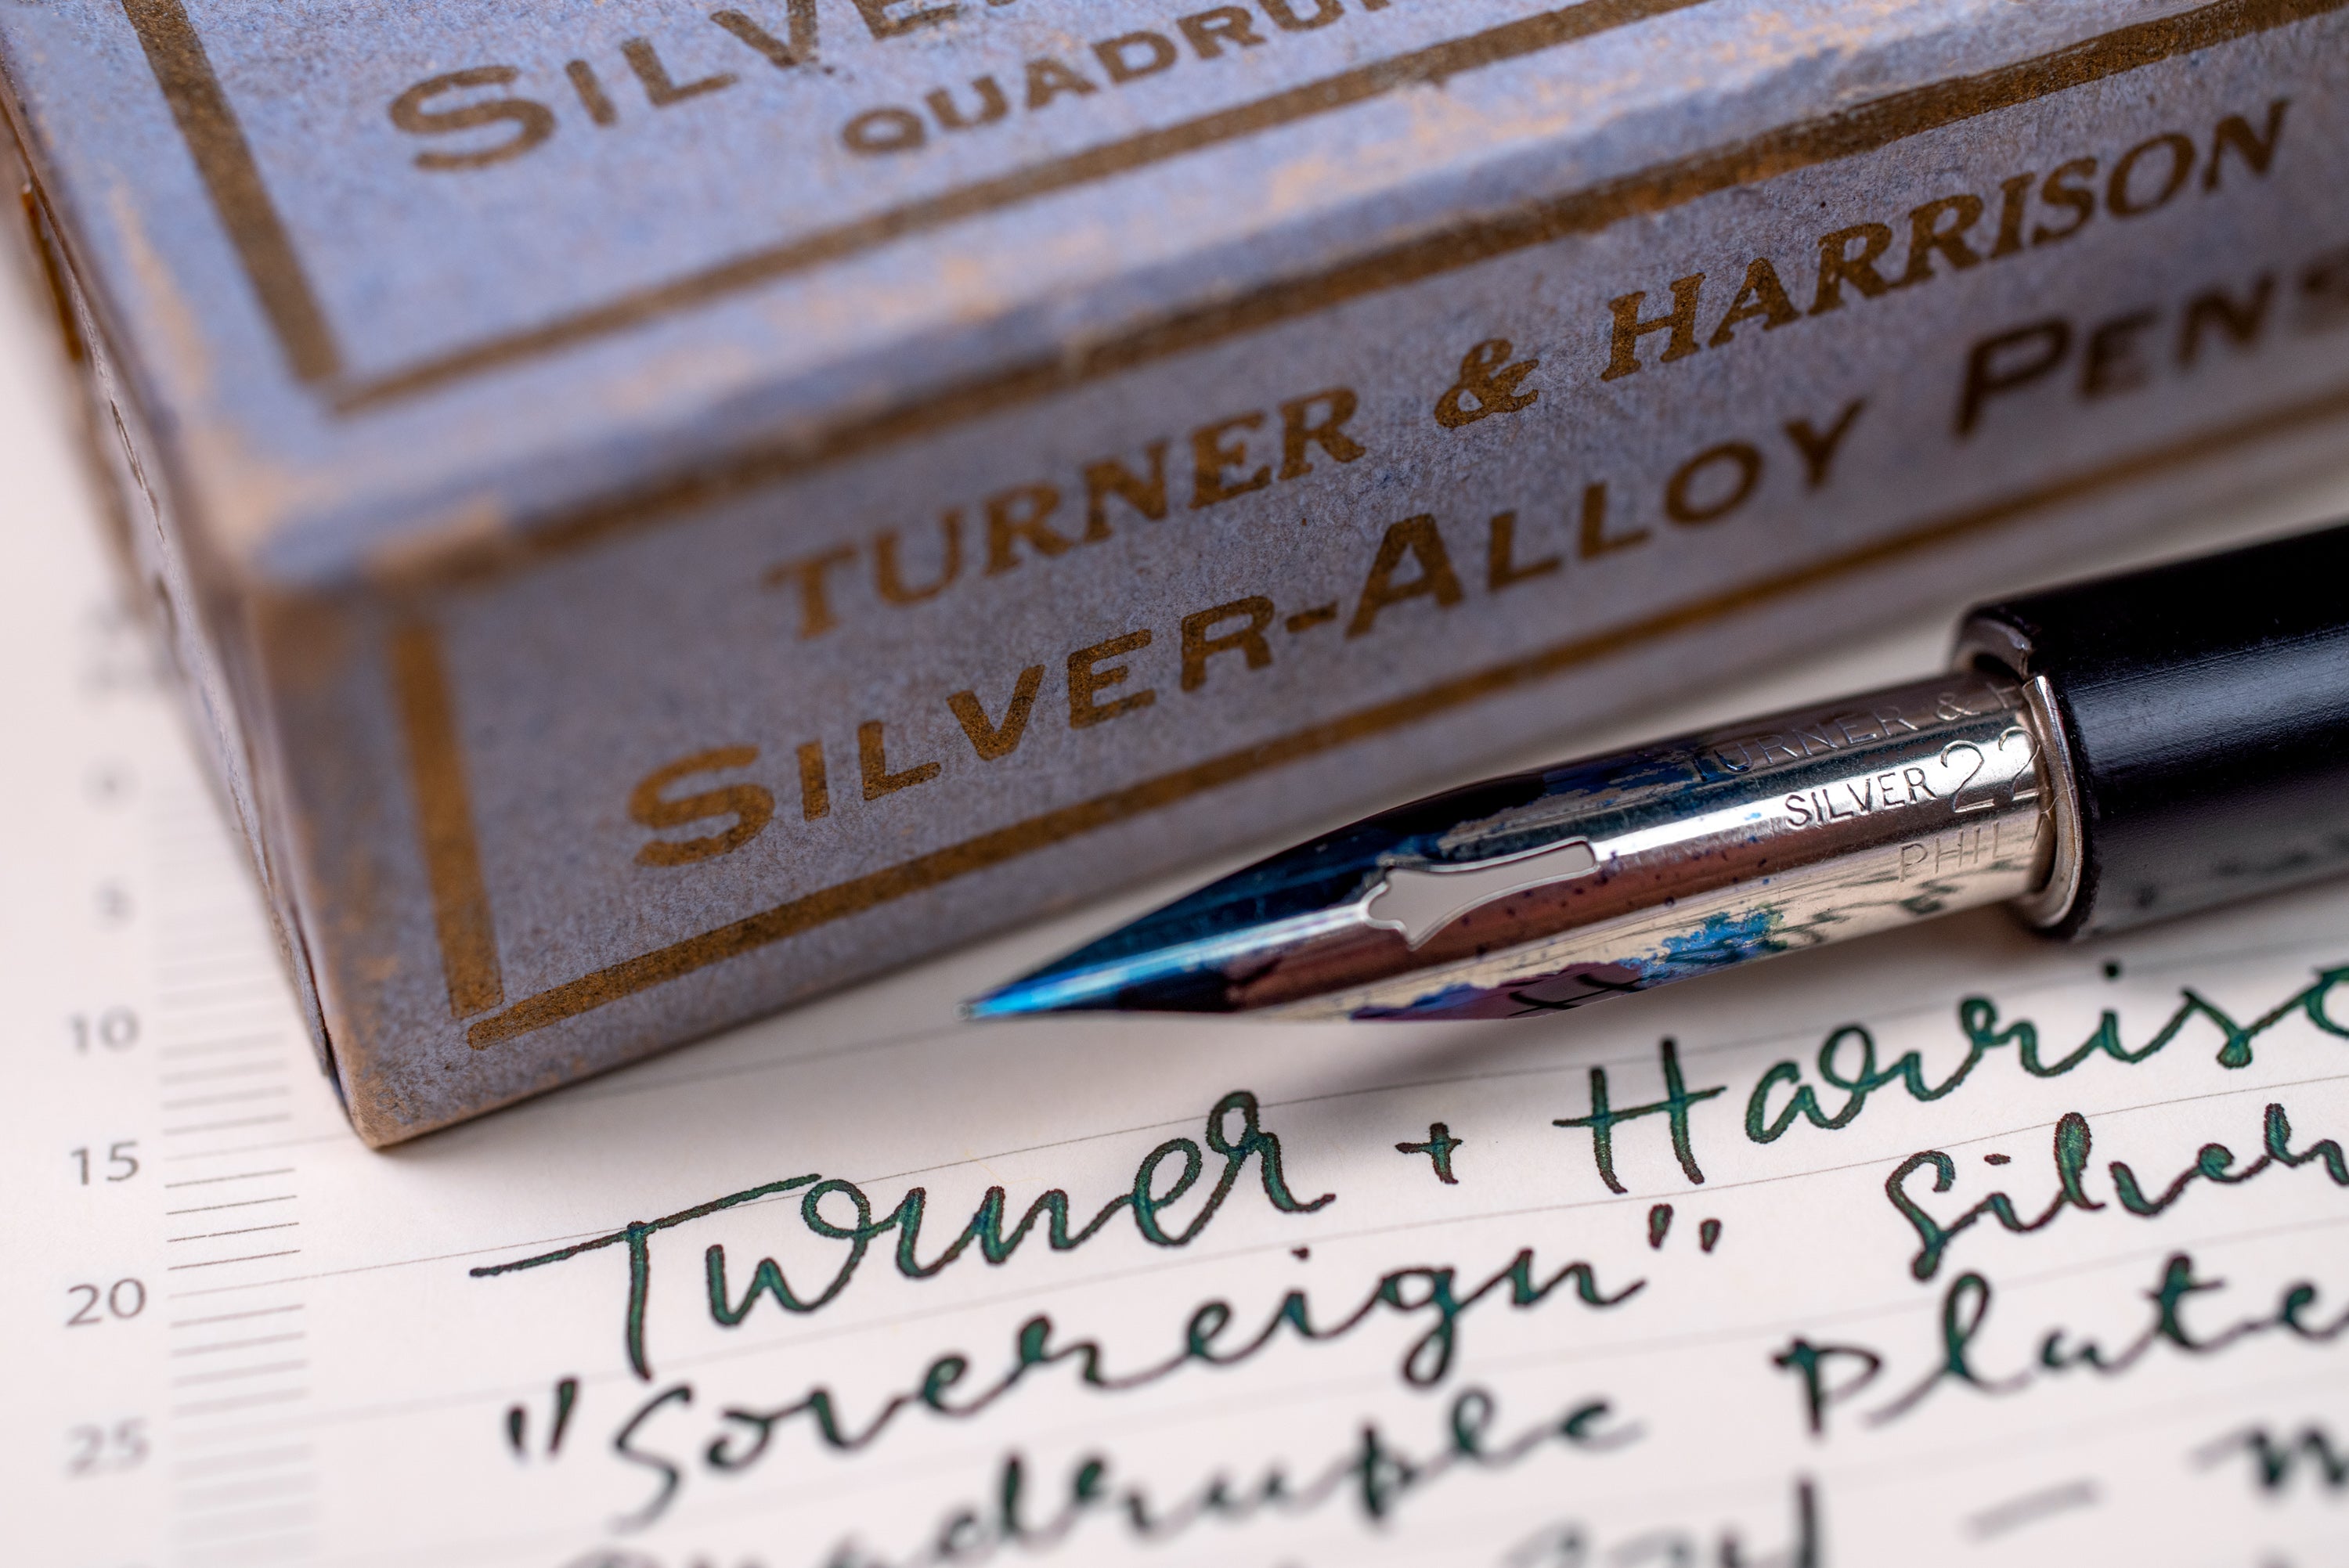 SILVE
QUADRU
TURNER & HARRISON
SILVER-ALLOY PENS
TURNER & H
SILVER 22
PHILA
10
15
20
25
Turner + Harriso
"Sovereign" Silver
Quadruple Plate